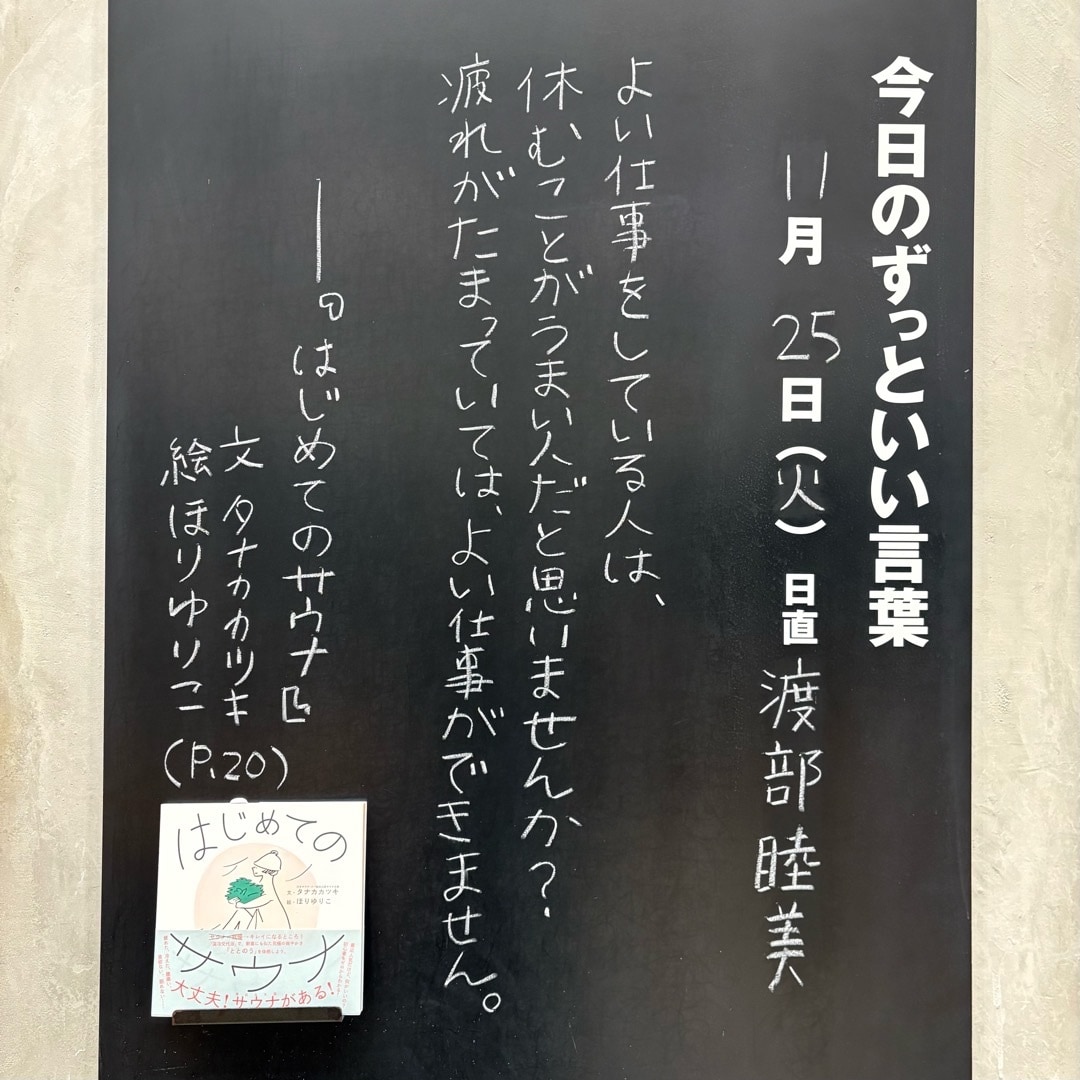 今日のずっといい言葉
11月 25日(火) 日直 渡部 睦美
よい仕事をしている人は、
休むことがうまい人だと思いませんか?
疲れがたまっていては、よい仕事ができません。
――『はじめてのサウナ』
文 タナカカツキ
絵 ほりゆりこ
(P.20)
はじめての
文・タナカカツキ
絵・ほりゆりこ
サウナ
「ととのう」
大丈夫!サウナがある!